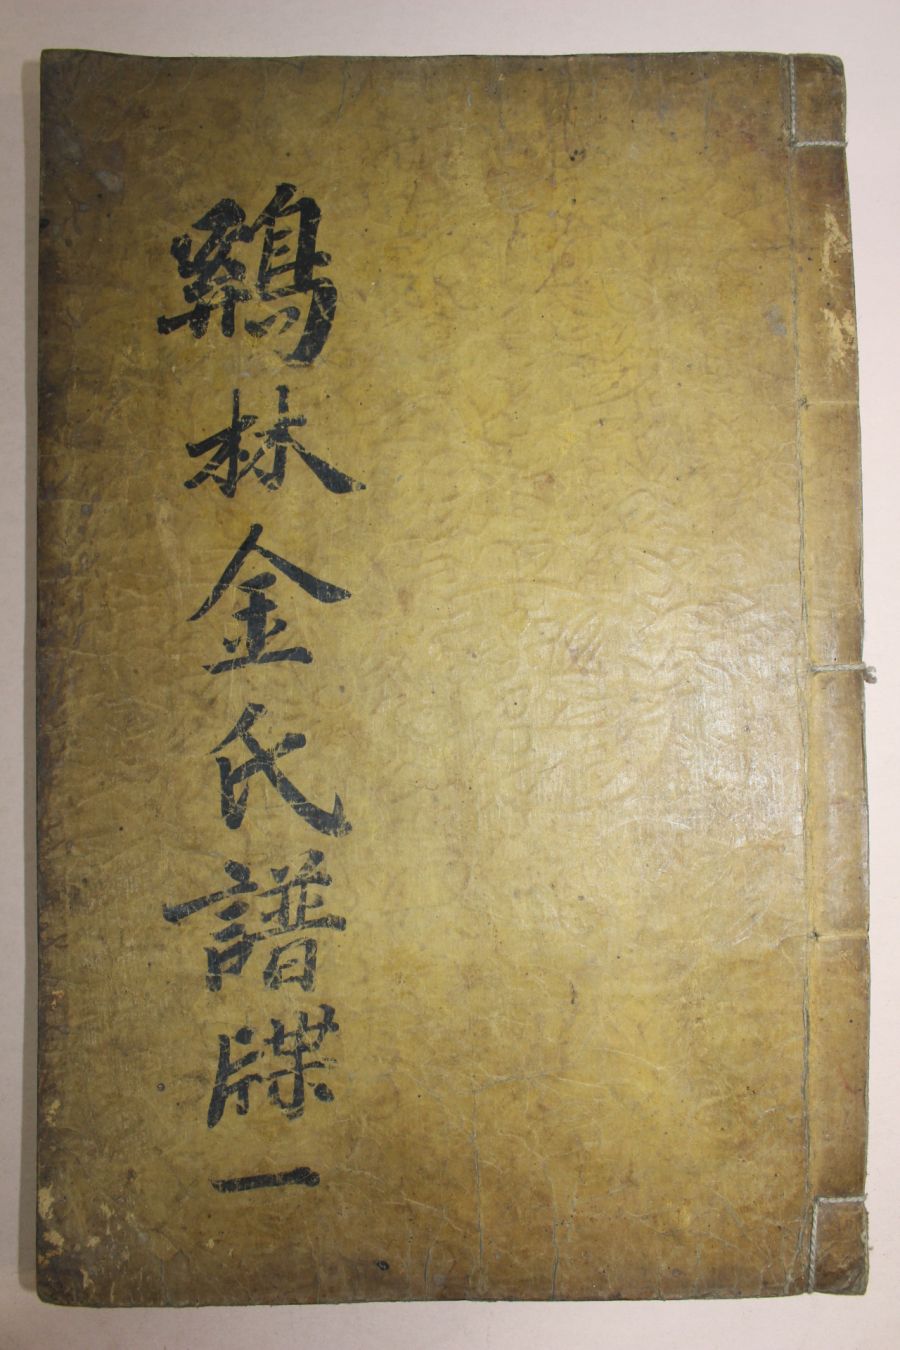 鷄林金氏譜牒一